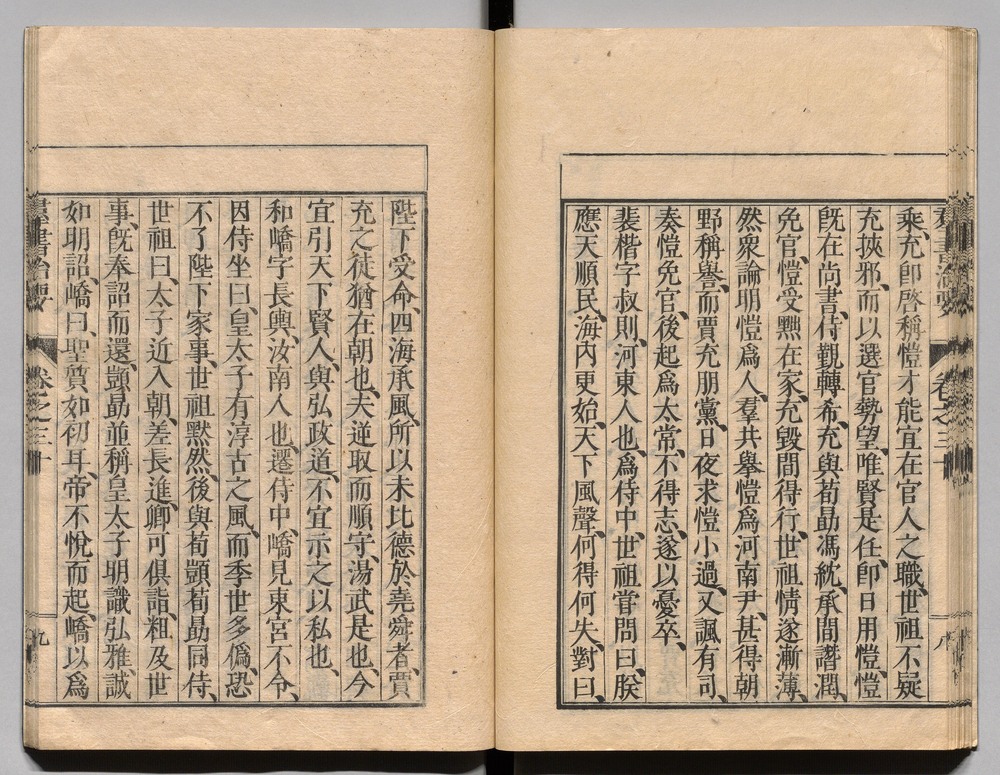 乘、充卽啓稱愷才能宜在官人之職、世祖不疑
充挾邪、而以選官勢望、唯賢是任、卽日用愷、愷
旣在尚書、侍覲轉希、充與荀勗馮紞、承間譖潤、
免官、愷受黜在家、充毀間得行、世祖情遂漸薄、
然衆論明愷爲人、羣共舉愷爲河南尹、甚得朝
野稱譽、而賈充朋黨、日夜求愷小過、又諷有司、
奏愷免官、後起爲太常、不得志、遂以憂卒、
裴楷字叔則、河東人也、爲侍中、世祖嘗問曰、朕
應天順民、海內更始、天下風聲、何得何失、對曰、
卷之三十
八
陛下受命、四海承風、所以未比德於堯舜者、賈
充之徒猶在朝也、夫逆取而順守、湯武是也、今
宜引天下賢人、與弘政道、不宜示之以私也、
和嶠字長輿、汝南人也、遷侍中、嶠見東宮不令、
因侍坐曰、皇太子有淳古之風、而季世多僞、恐
不了陛下家事、世祖默然、後與荀顗荀勗同侍、
世祖曰、太子近入朝、差長進、卿可俱詣、粗及世
事、旣奉詔而還、顗勗並稱皇太子明識弘雅、誠
如明詔、嶠曰、聖質如初耳、帝不悅而起、嶠以爲
羣書治要
卷之三十
九